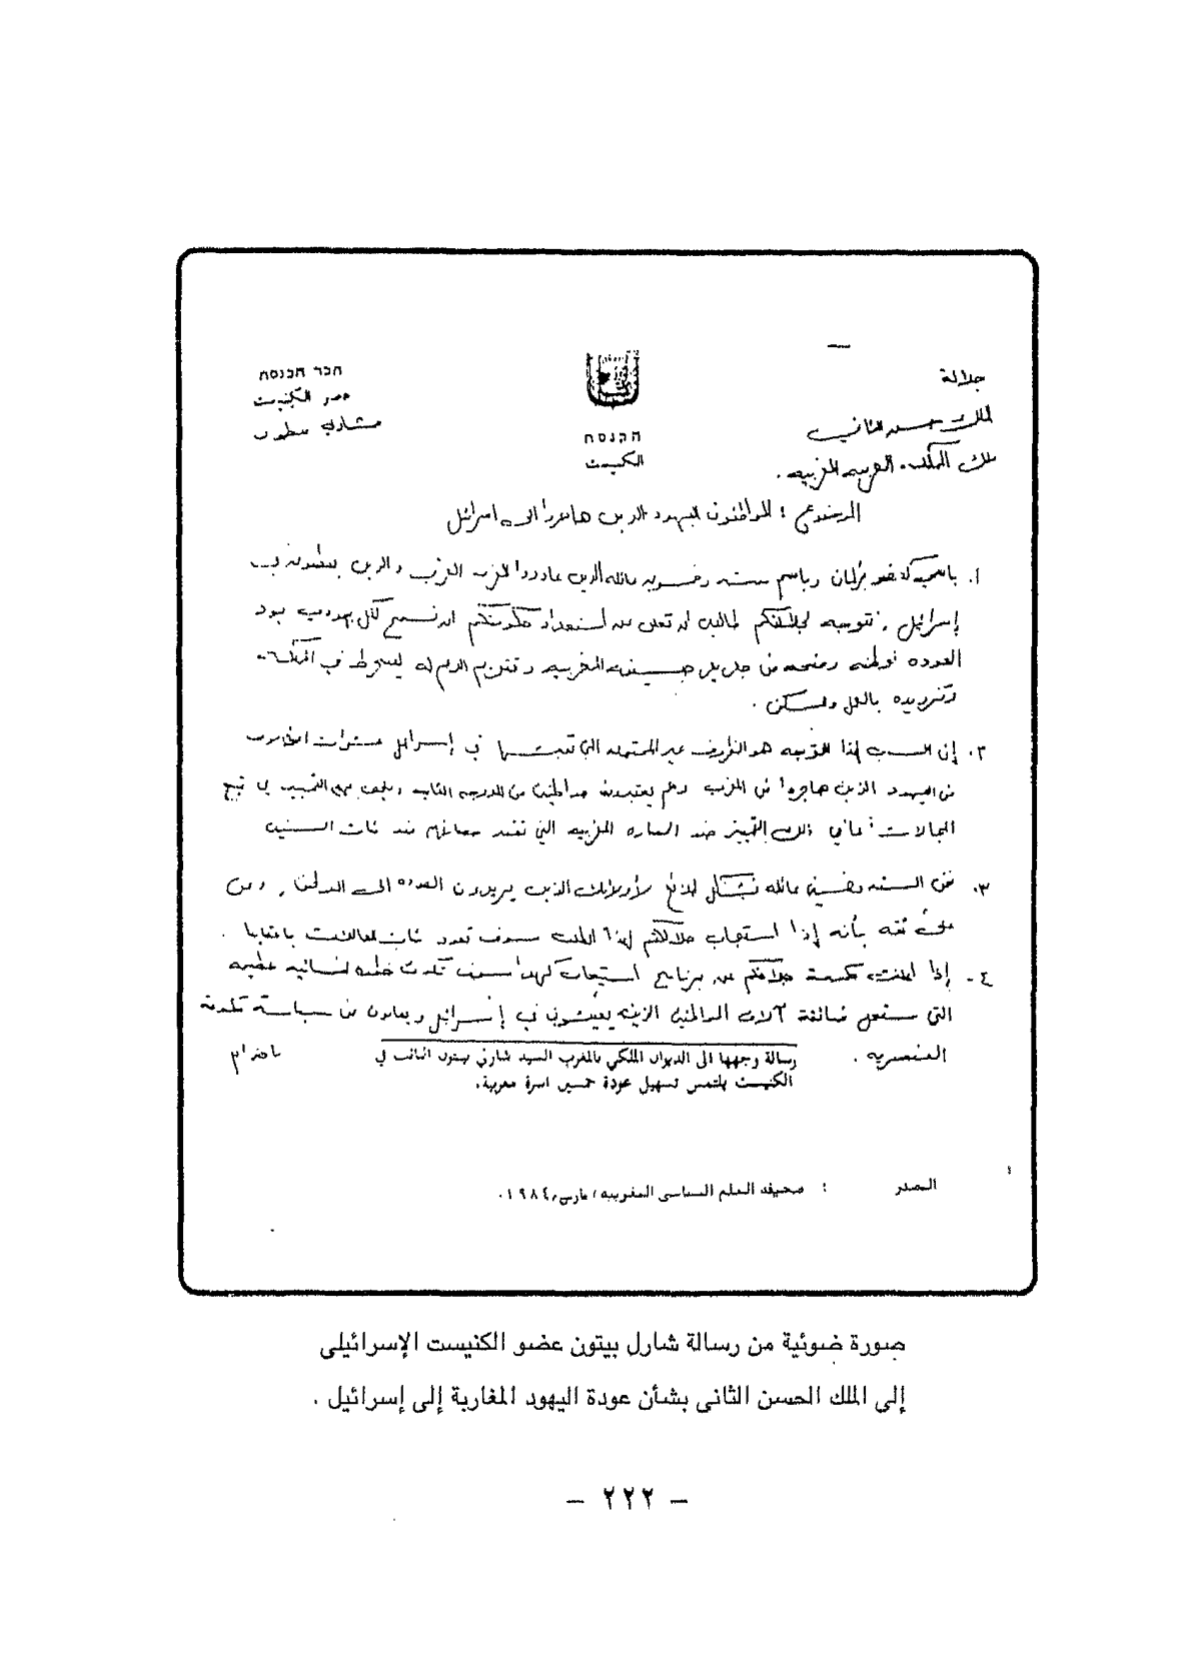 חבר הכנסת
عضو الكنيست
הכנסת
الكنيست
جلالة
الملك حسن الثاني
ملك المملكة العربية المغربية .
الموضوع : المواطنون اليهود الذين هاجروا الى اسرائيل
١. باسمي كعضو برلمان وباسم ستة وخمسون عائلة الذين غادروا المغرب والذين في
إسرائيل , نتوجه لجلالتكم طالبين ان تعلن عن استعداد حكومتكم ان تسمح لكل يهودي يود
العودة لوطنه ومنحه من جديد جنسيته المغربية وتقديم الدعم له في المملكة
وتزويده بالعمل والسكن .
٢. إن السبب لهذا التوجه هو الظروف غير المحتملة التي في إسرائيل عشرات
من اليهود الذين هاجروا من المغرب وهم يعتبرون مواطنين من الدرجة الثانية التمييز في جميع
المجالات بما في ذلك التمييز ضد الحضارة المغربية التي منذ مئات السنين
٣. نحن الستة وخمسين عائلة نشكل لأولئك الذين يريدون العودة الى الوطن , ونحن
على ثقة بأنه إذا استجاب جلالتكم لهذا الطلب سوف تعود مئات العائلات باعقابنا .
٤- إذا حكومة جلالتكم عن برنامج استيعاب كهذا سوف تكون خطوة انسانية عظيمة
التي ستعمل آلاف المواطنين الذين يعيشون في إسرائيل ويعانون من سياسة حكومته
العنصرية .
رسالة وجهها الى الديوان الملكي بالمغرب السيد شارلي بيتون النائب في
الكنيست يلتمس تسهيل عودة خمسين اسرة مغربية.
المصدر : صحيفة العلم السياسى المغربية / مارس / ١٩٨٤.
صورة ضوئية من رسالة شارل بيتون عضو الكنيست الإسرائيلى
إلى الملك الحسن الثانى بشأن عودة اليهود المغاربة إلى إسرائيل .
– ٢٢٢ –